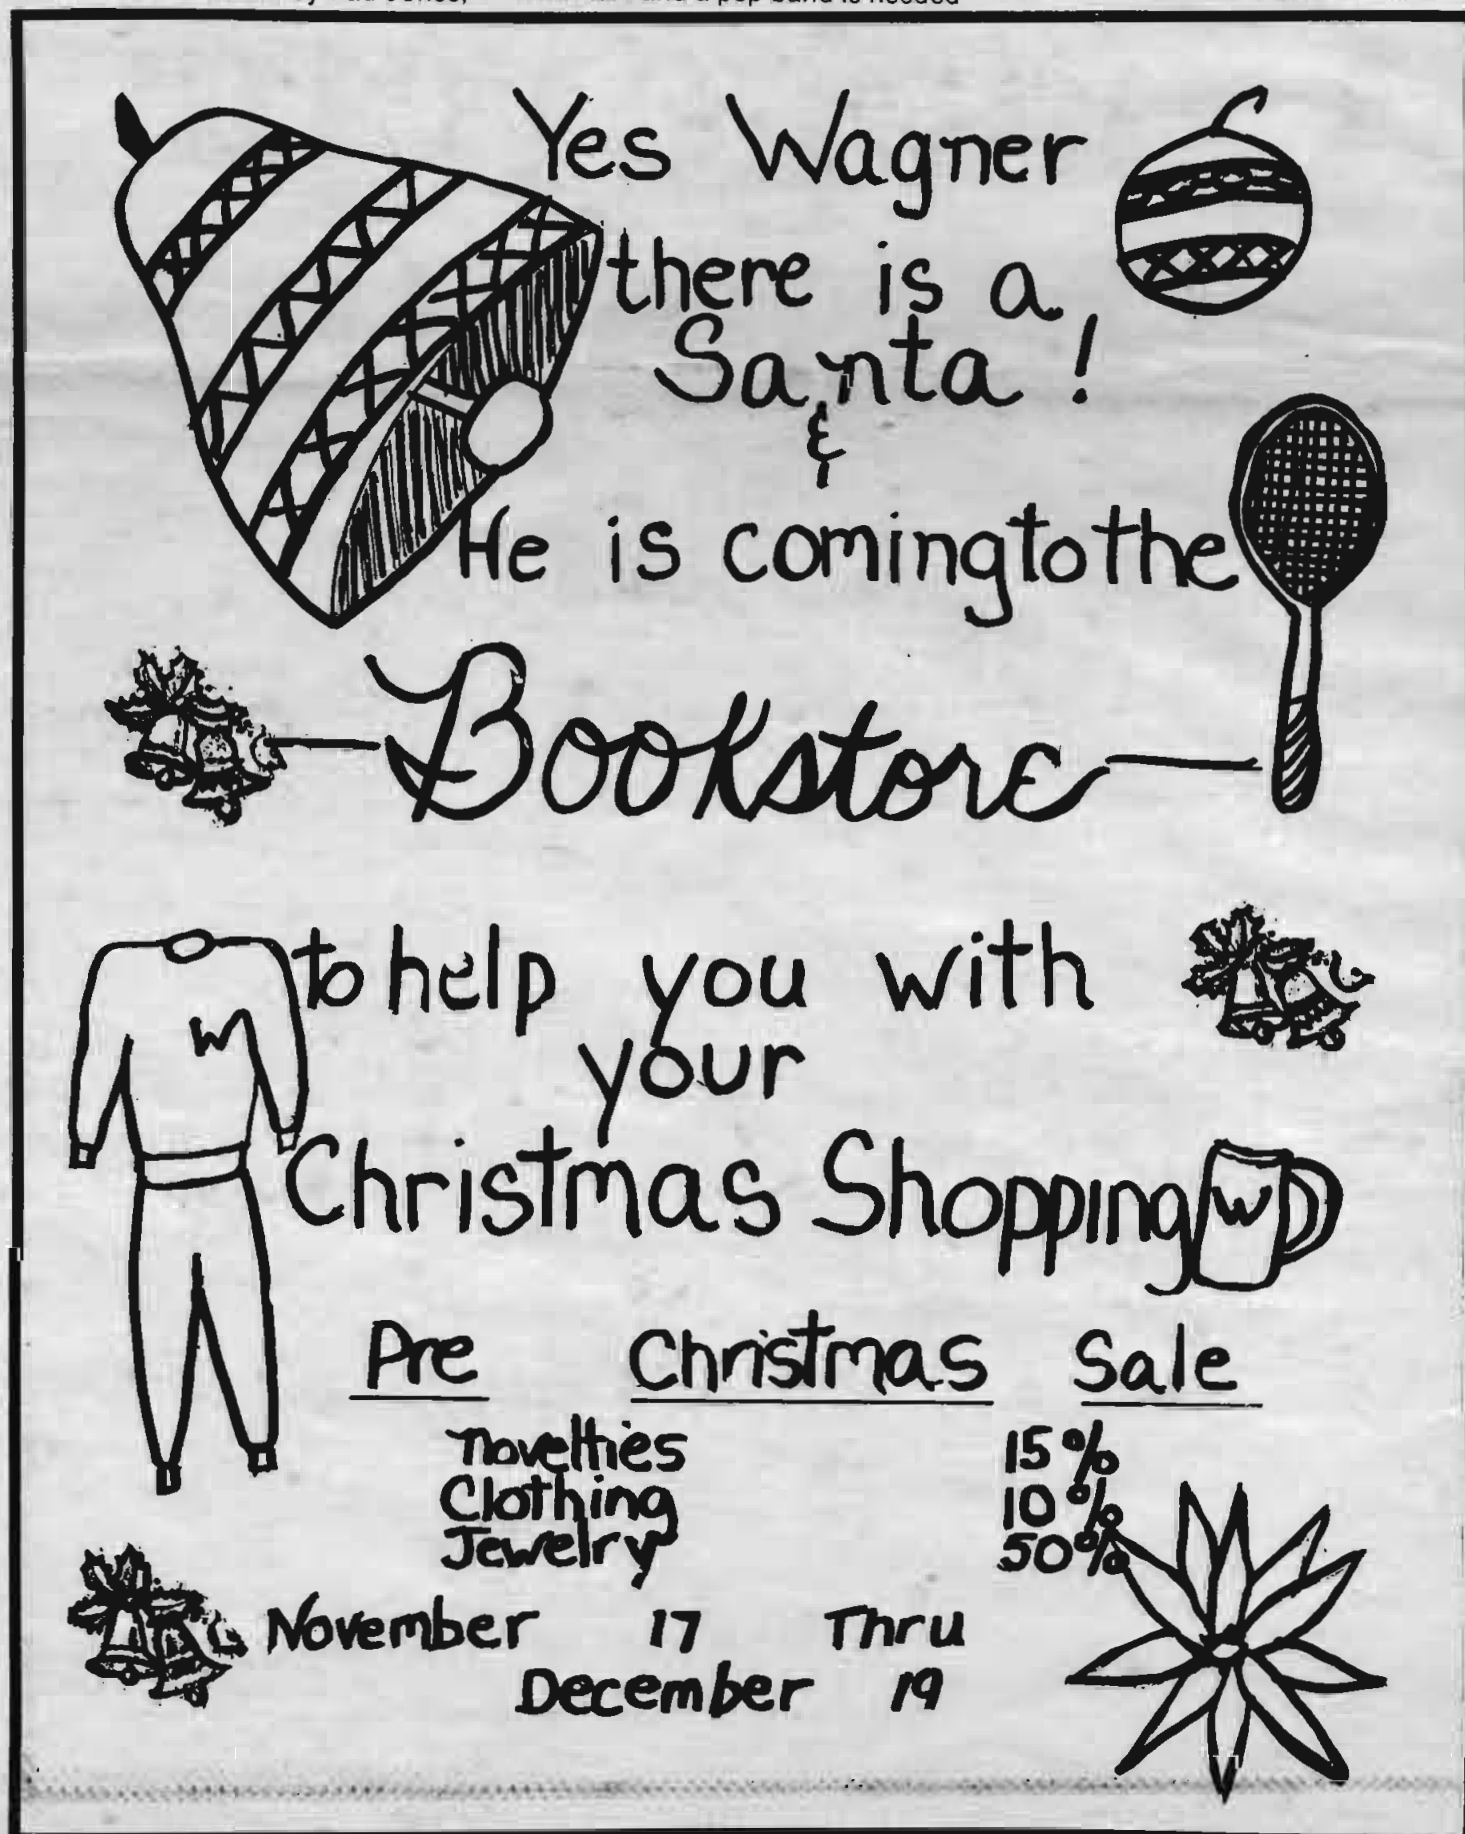 and a pop band is needed
Yes Wagner
there is a
Santa!
&
He is coming to the
Bookstore
to help you with
your
Christmas Shopping
W
W
Pre Christmas Sale
Novelties 15%
Clothing 10%
Jewelry 50%
November 17 Thru
December 19